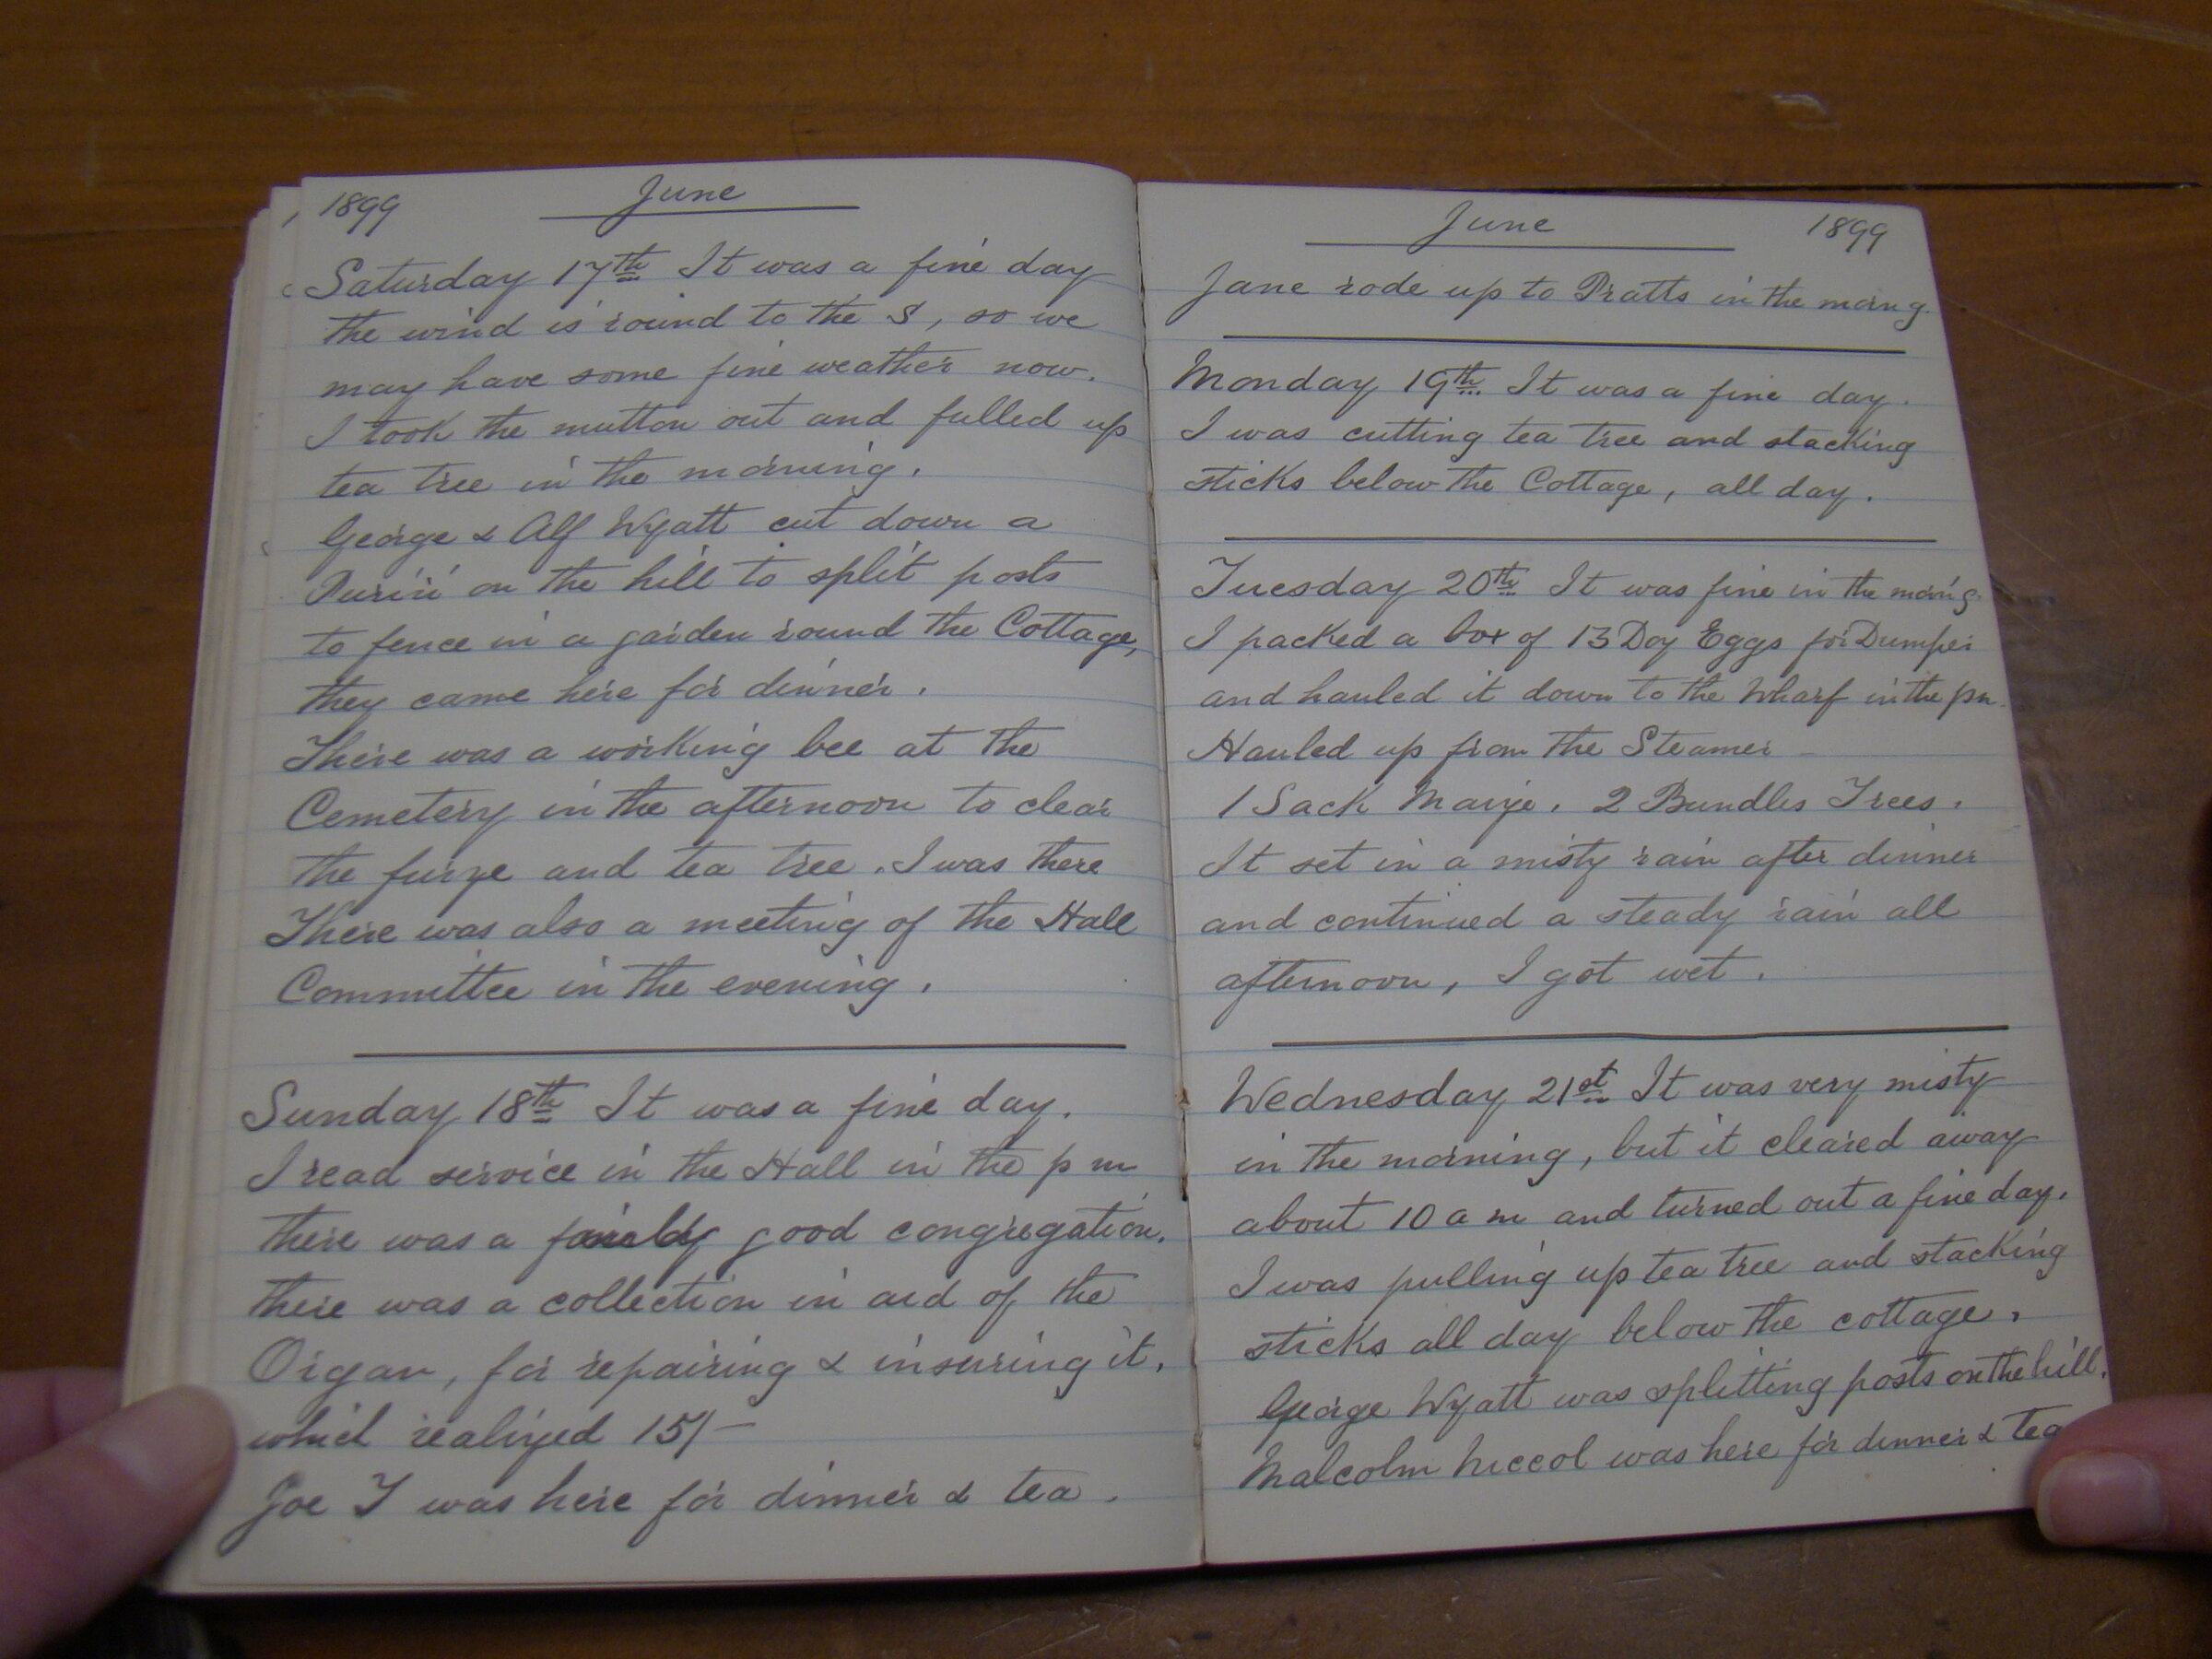 1899 June
Saturday 17th It was a fine day
the wind is round to the S, so we
may have some fine weather now.
I took the mutton out and pulled up
tea tree in the morning.
George & Alf Wyatt cut down a
Puriri on the hill to split posts
to fence in a garden round the Cottage,
they came here for dinner.
There was a working bee at the
Cemetery in the afternoon to clear
the furze and tea tree. I was there
There was also a meeting of the Hall
Committee in the evening.
Sunday 18th It was a fine day.
I read service in the Hall in the p m
there was a fairly good congregation.
there was a collection in aid of the
Organ, for repairing & insuring it,
which realized 15/-
Joe T was here for dinner & tea.
June 1899
Jane rode up to Pratts in the morng.
Monday 19th It was a fine day.
I was cutting tea tree and stacking
sticks below the Cottage, all day.
Tuesday 20th It was fine in the morng.
I packed a box of 13 Doz Eggs for
and hauled it down to the Wharf in the pm.
Hauled up from the Steamer
1 Sack Maize. 2 Bundles Trees.
It set in a misty rain after dinner
and continued a steady rain all
afternoon, I got wet.
Wednesday 21st It was very misty
in the morning, but it cleared away
about 10 a m and turned out a fine day.
I was pulling up tea tree and stacking
sticks all day below the cottage.
George Wyatt was splitting posts on the hill.
Malcolm Niccol was here for dinner & tea